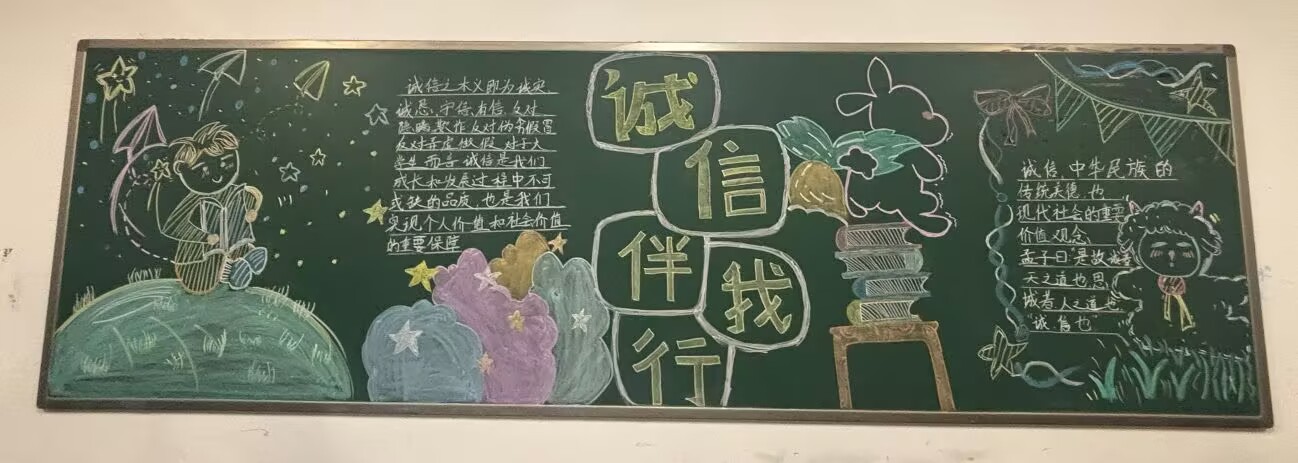 诚信之本义即为诚实、
诚恳、守信、有信,反对
隐瞒欺诈、反对伪劣假冒
反对弄虚做假,对于大
学生而言,诚信是我们
成长和发展过程中不可
或缺的品质,也是我们
实现个人价值和社会价值
的重要保障
诚
信
伴
我
行
诚信,中华民族的
传统美德,也
现代社会的重要
价值观念
孟子曰"是故诚者
天之道也,思
诚者,人之道也
"诚信也"